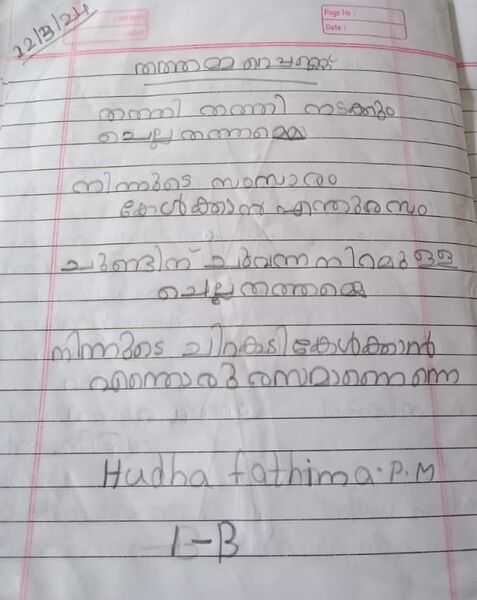 22/3/24
Page No :
Date :
തത്തമ്മ പെണ്ണ്
തത്തി തത്തി നടക്കും
ചെല്ല തത്തമ്മെ
നിന്നുടെ സംസാരം
കേൾക്കാൻ എന്തുരസം
ചുണ്ടിന് ചുവന്ന നിറമുള്ള
ചെല്ല തത്തമ്മെ
നിന്നുടെ ചിറകടി കേൾക്കാൻ
എന്തൊരു രസമാണെന്നെ
Hudha fathima.P.M
1-B